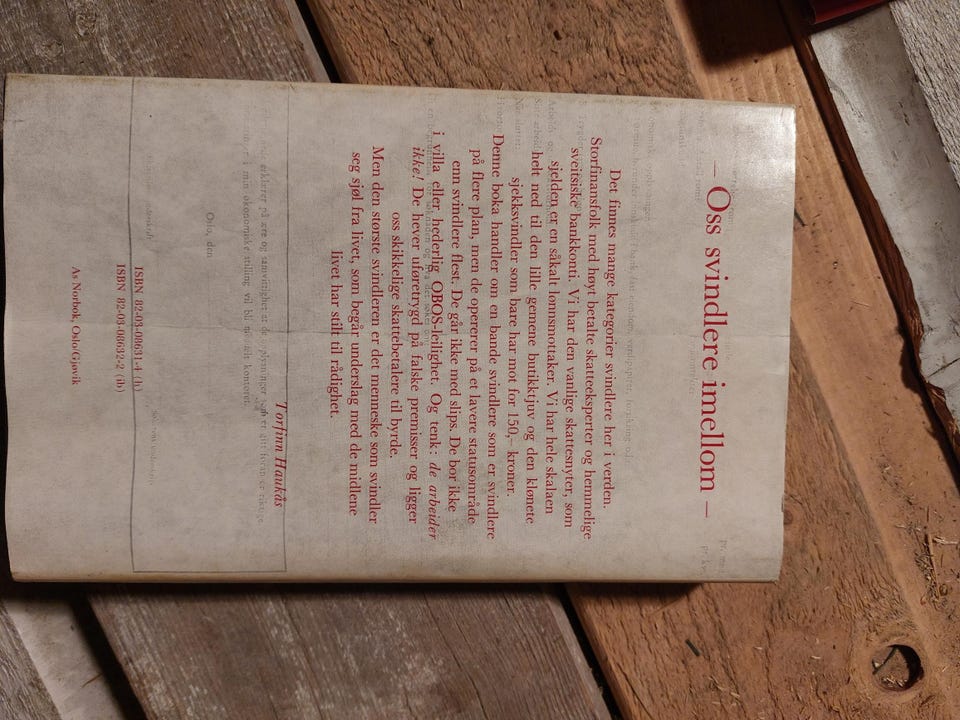 — Oss svindlere imellom —
Det finnes mange kategorier svindlere her i verden.
Storfinansfolk med høyt betalte skatteeksperter og hemmelige
sveitsiske bankkonti. Vi har den vanlige skattesnyter, som
sjelden er en såkalt lønnsmottaker. Vi har hele skalaen
helt ned til den lille gemene butikktjuv og den klønete
sjekksvindler som bare har mot for 150,- kroner.
Denne boka handler om en bande svindlere som er svindlere
på flere plan, men de opererer på et lavere statusområde
enn svindlere flest. De går ikke med slips. De bor ikke
i villa eller hederlig OBOS-leilighet. Og tenk: de arbeider
ikke! De hever uføretrygd på falske premisser og ligger
oss skikkelige skattebetalere til byrde.
Men den største svindleren er det menneske som svindler
seg sjøl fra livet, som begår underslag med de midlene
livet har stilt til rådighet.
Torfinn Haukås
erklærer på ære og samvittighet at de opplysninger som er gitt foran er riktige
i min økonomiske stilling vil bli meddelt kontoret.
Oslo, den
underskrift
ISBN 82-03-08631-4 (h)
ISBN 82-03-08632-2 (ib)
As Norbok, Oslo/Gjøvik